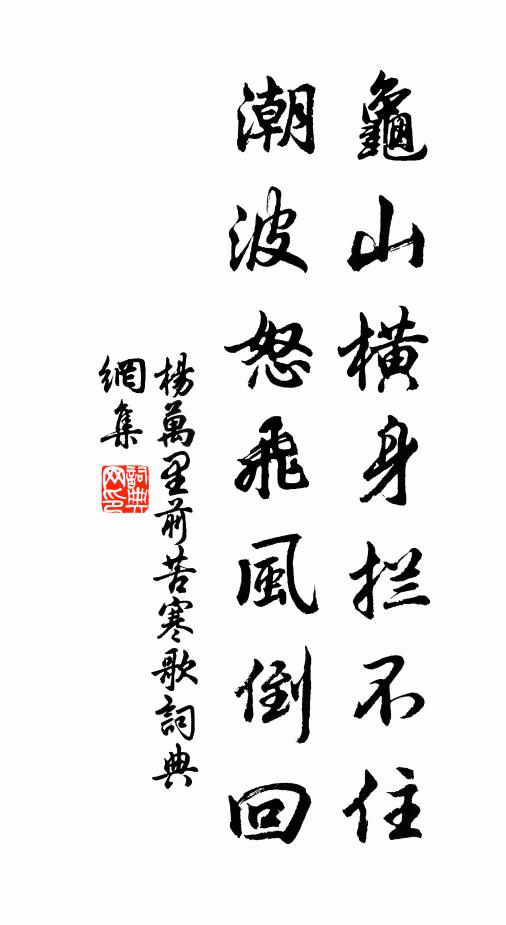 龜山橫身拦不住
潮波怒飛風倒回
楊萬里前苦寒歌詞典
網集
詞典網印